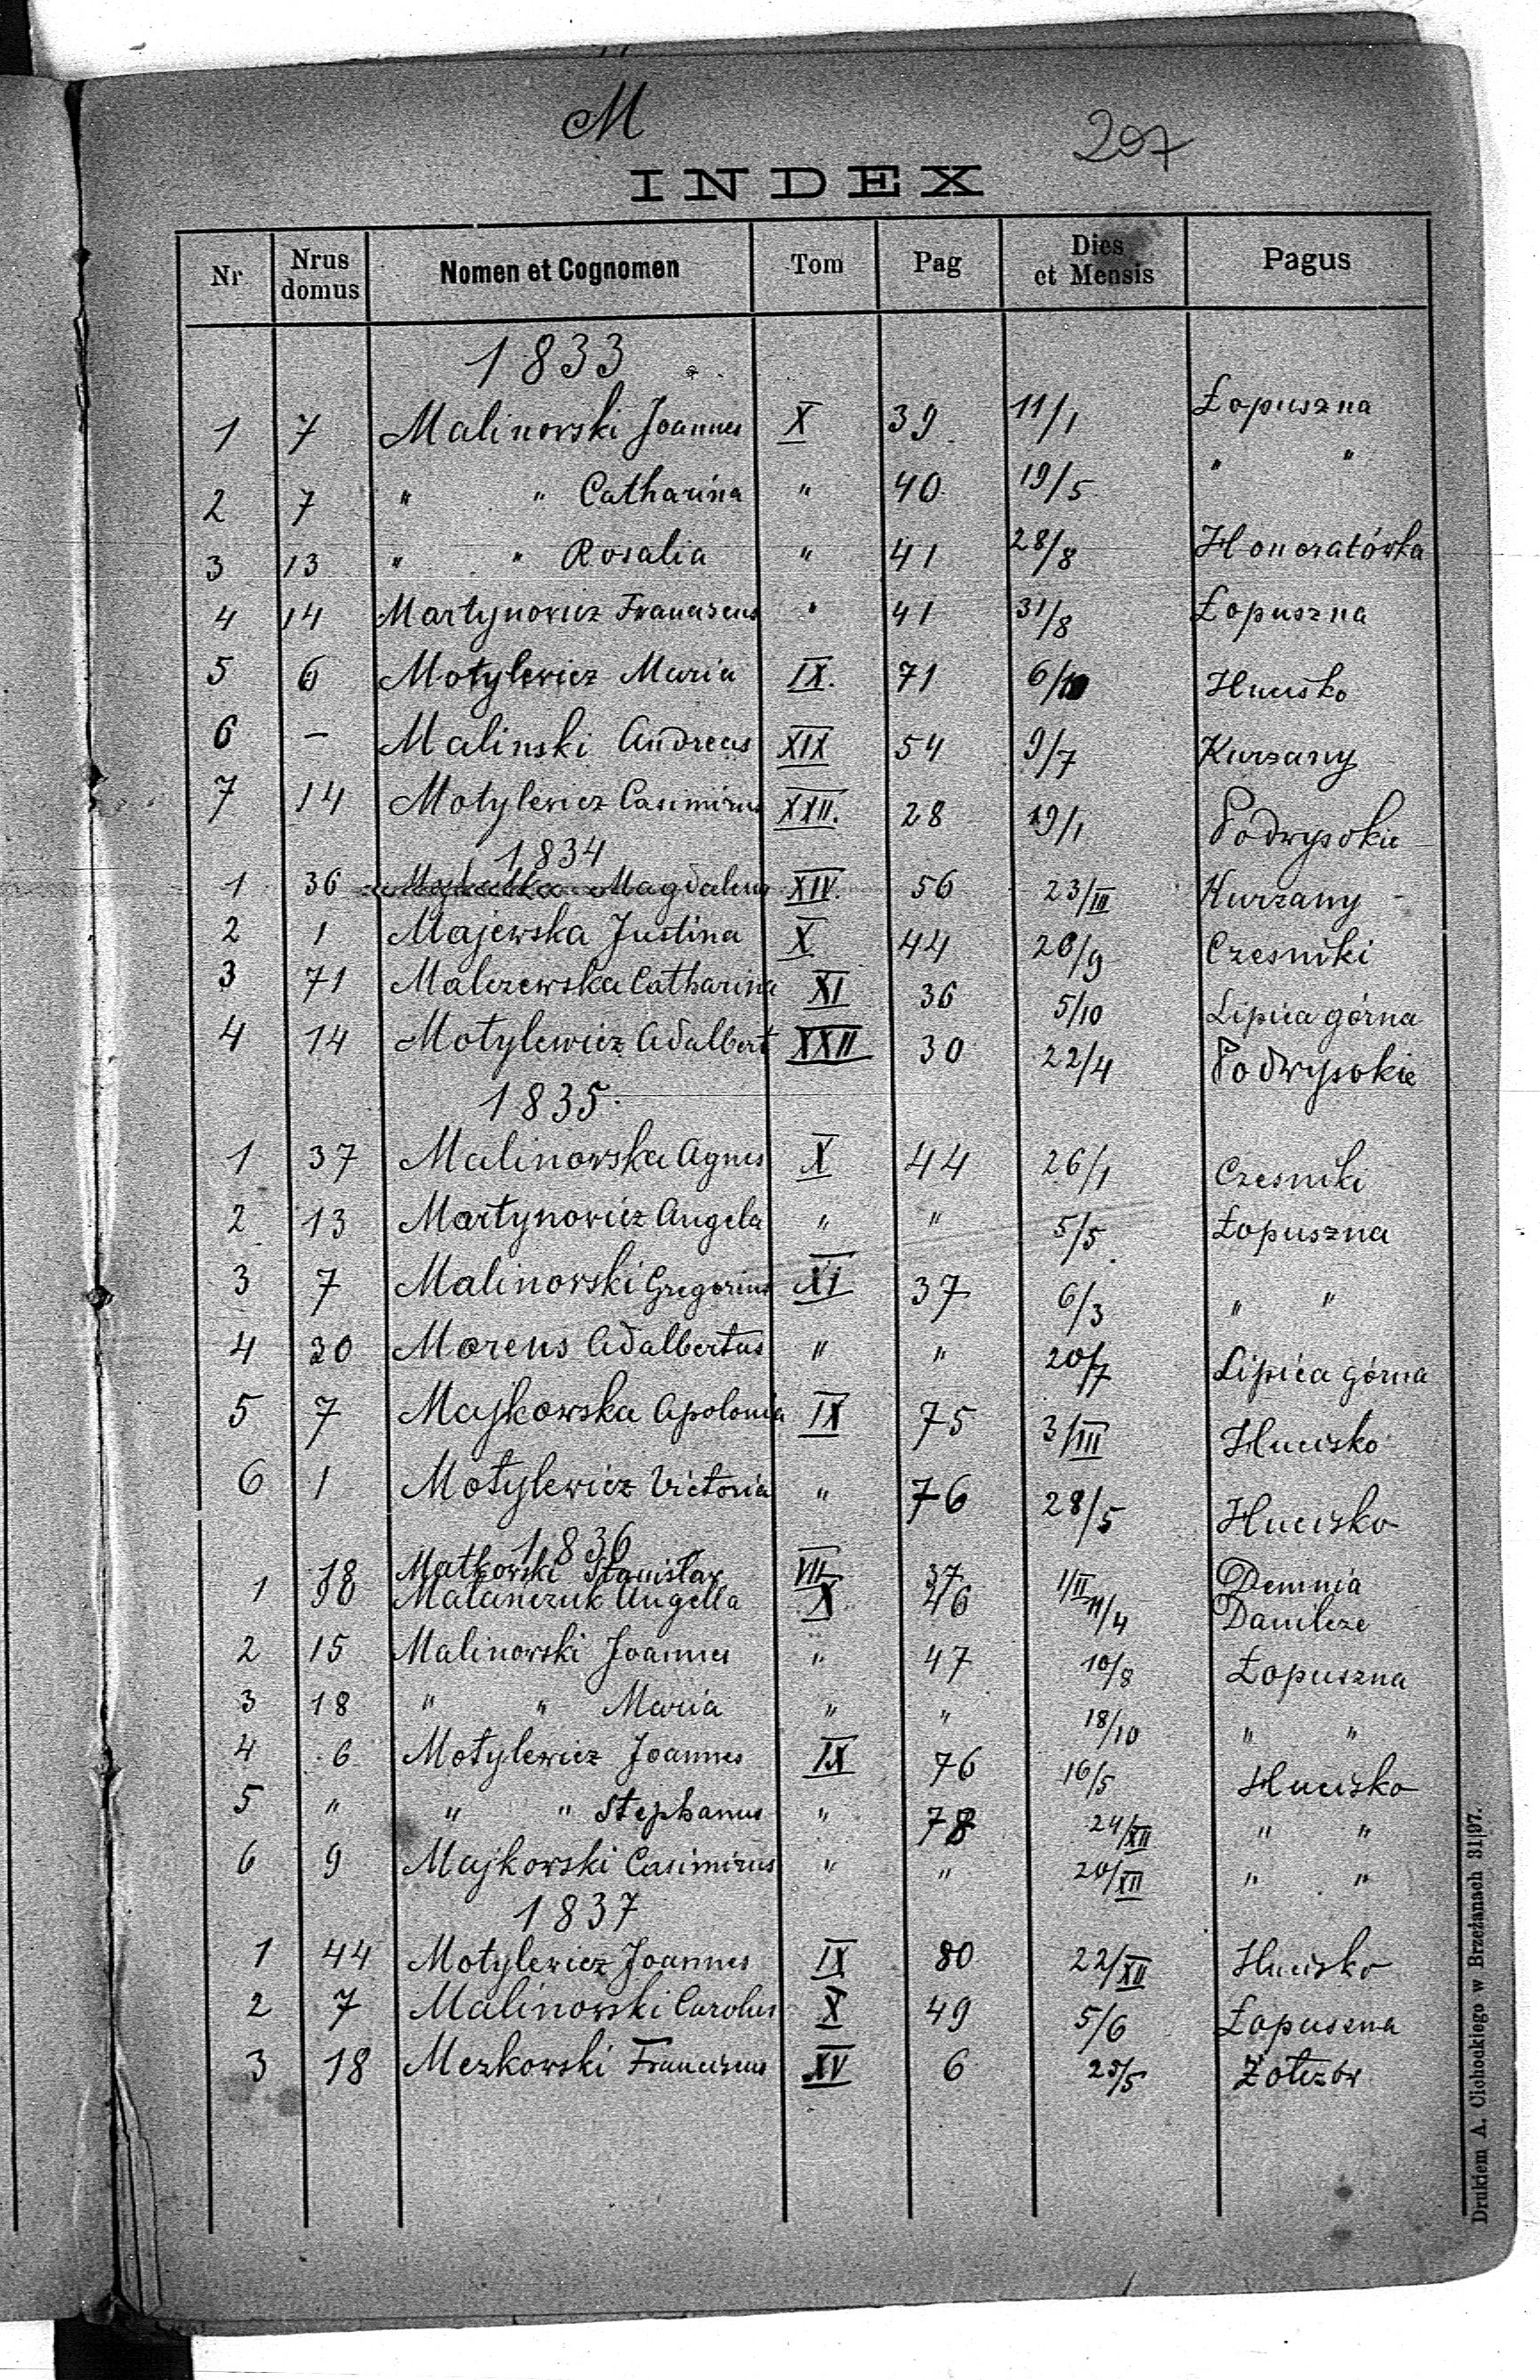 M
207
INDEX
Nr Nrus domus Nomen et Cognomen Tom Pag Dies et Mensis Pagus
1833
1 7 Malinowski Joannes X 39 11/1 Łopuszna
2 7 " " Catharina " 40 19/5 " "
3 13 " " Rosalia " 41 28/8 Honoratówka
4 14 Martynowicz Franciscus " 41 31/8 Łopuszna
5 6 Motylewicz Maria IX. 71 6/10 Hucisko
6 – Malinski Andreas XIX 54 9/7 Kurzany
7 14 Motylewicz Casimirus XXII. 28 19/1 Podwysokie
1834
1 36 Magdalena XIV. 56 23/III Kurzany
2 1 Majewska Justina X 44 26/9 Czesniki
3 71 Malczewska Catharina XI 36 5/10 Lipica górna
4 14 Motylewicz Adalbert XXII 30 22/4 Podwysokie
1835
1 37 Malinowska Agnes X 44 26/1 Czesniki
2 13 Martynowicz Angela " " 5/5 Łopuszna
3 7 Malinowski Gregorius XI 37 6/3 " "
4 30 Morens Adalbertus " " 20/7 Lipica górna
5 7 Majkowska Apolonia IX 75 3/III Hucisko
6 1 Motylewicz Victoria " 76 28/5 Hucisko
1836
18 Matkowski Stanislaw VII 37 1/II Demnia
1 Malanczuk Angella X 46 11/4 Danilcze
2 15 Malinowski Joannes " 47 10/8 Łopuszna
3 18 " " Maria " " 18/10 " "
4 6 Motylewicz Joannes IX 76 16/5 Hucisko
5 " " " Stephanus " 78 24/XII " "
6 9 Majkowski Casimirus " " 20/XII " "
1837
1 44 Motylewicz Joannes IX 80 22/XII Hucisko
2 7 Malinowski Carolus X 49 5/6 Łopuszna
3 18 Mezkowski Franciscus XV 6 25/5 Żołczów
Drukiem A. Cichockiego w Brzeżanach 31|97.